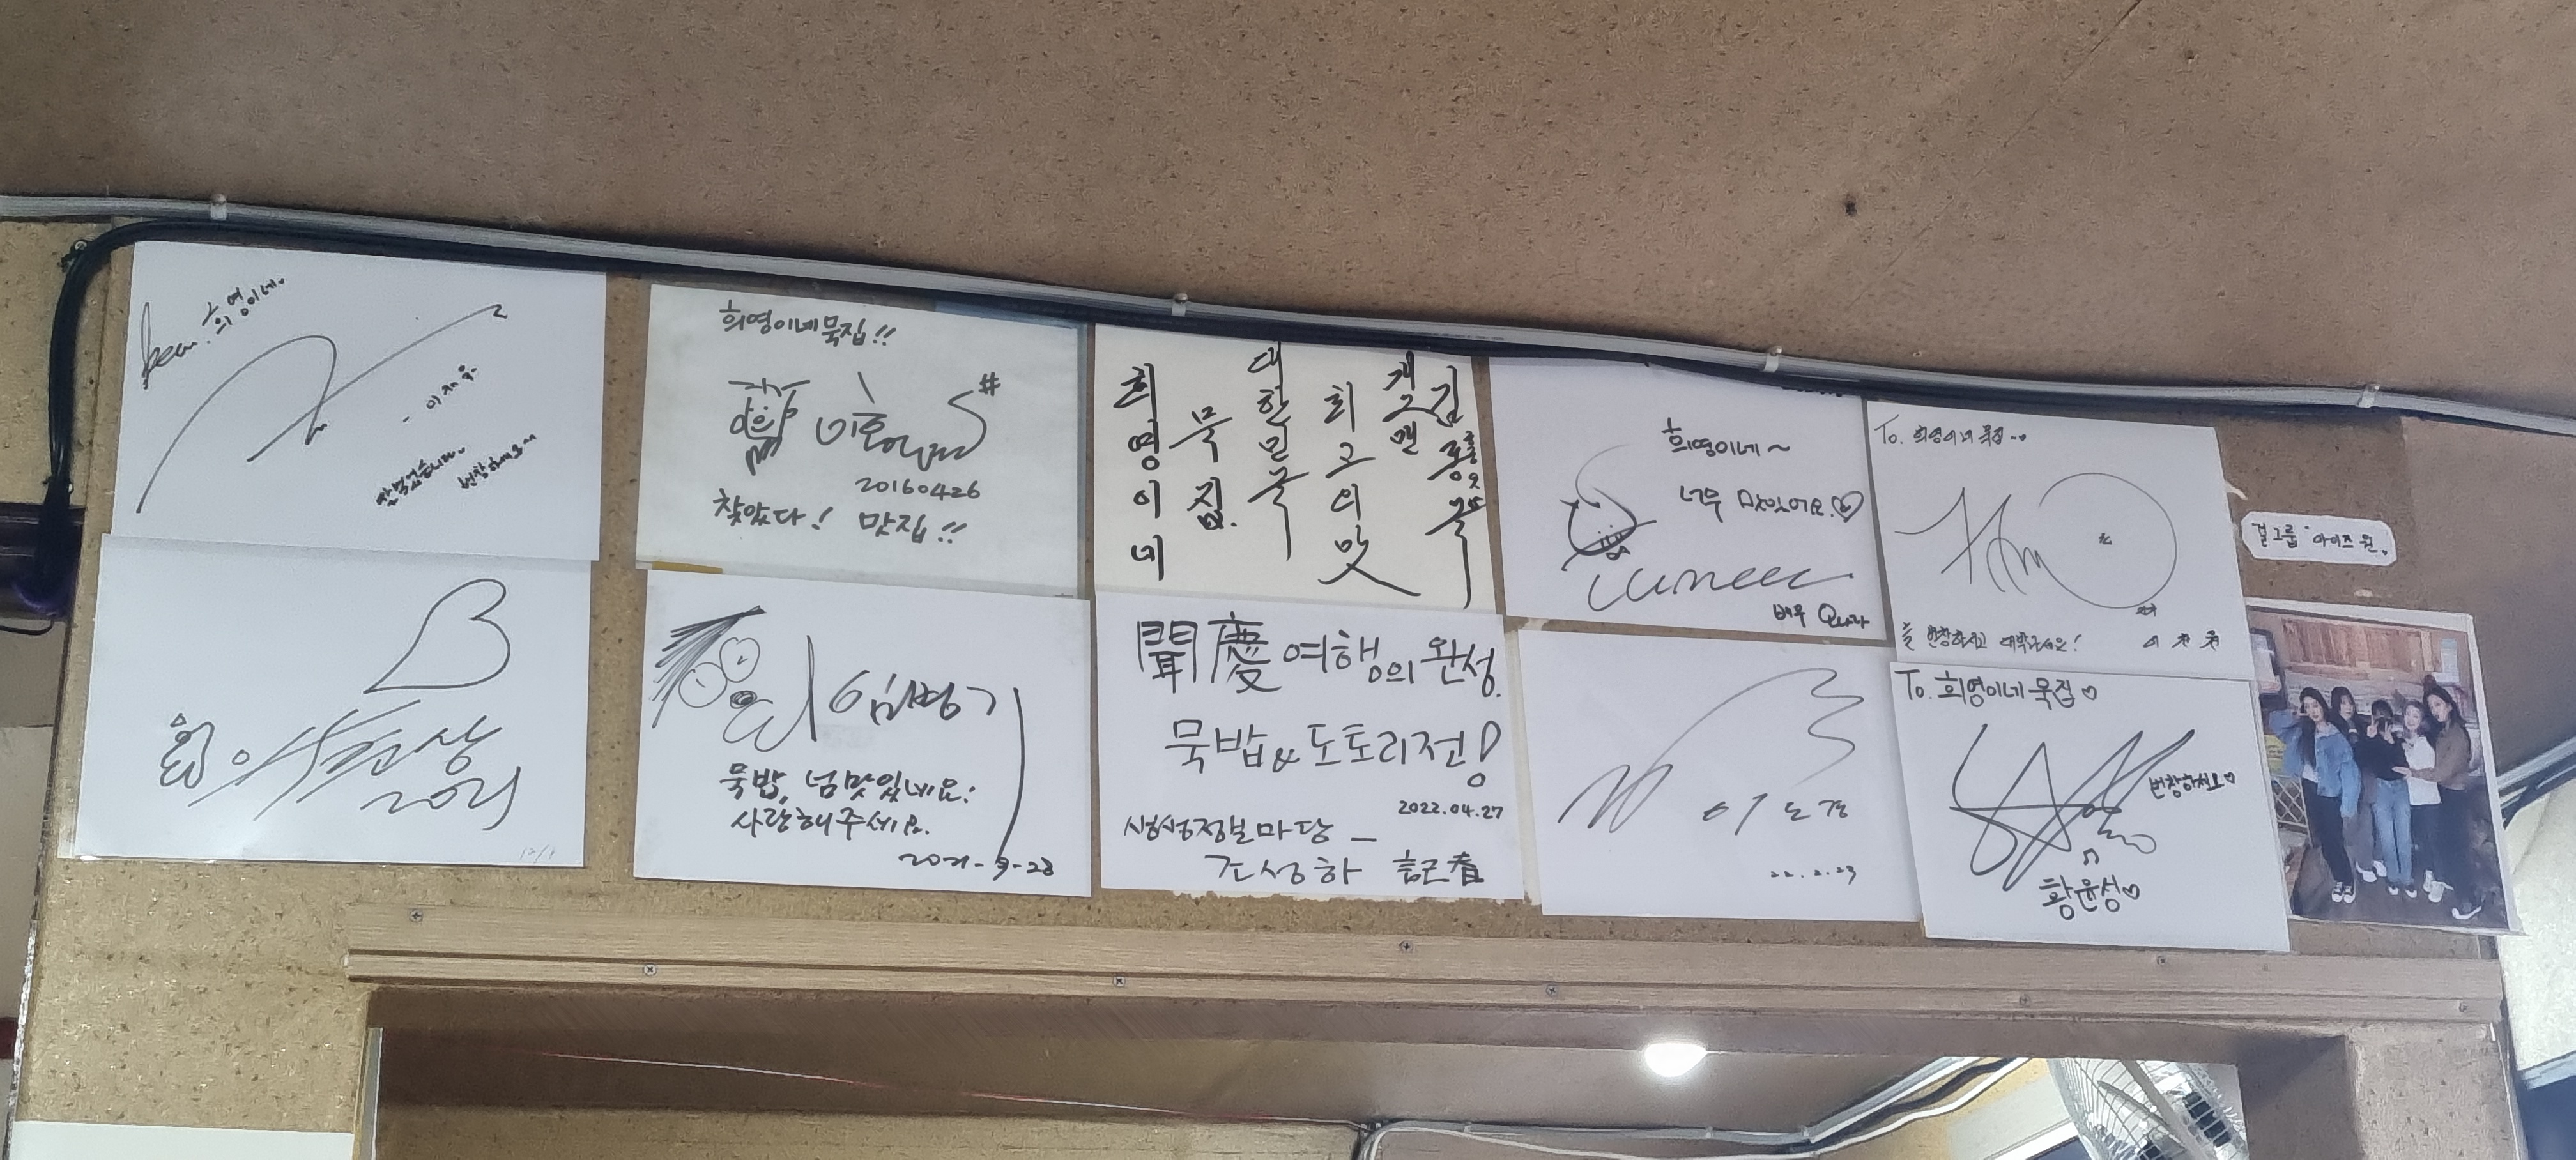 희영이네.
- 이재욱
맛있었습니다.
번창하세요~~
희영이네묵집!!
20160426
찾았다! 맛집!!
희영이네
묵집.
대한민국
최고의맛
개그맨
김홍국
희영이네~
너무 맛있어요.♡
배우
To. 희영이네 묵집..♡
늘 번창하시고 대박나세요!
걸그룹 "아이즈 원"
2021
임병기
묵밥, 넘맛있네요!
사랑해주세요.
2021-9-28
聞慶 여행의 완성.
묵밥&도토리전!
2022.04.27
생생정보마당 -
조성하
이도경
22.2.23
To. 희영이네 묵집♡
번창하세요♡
황윤성♡